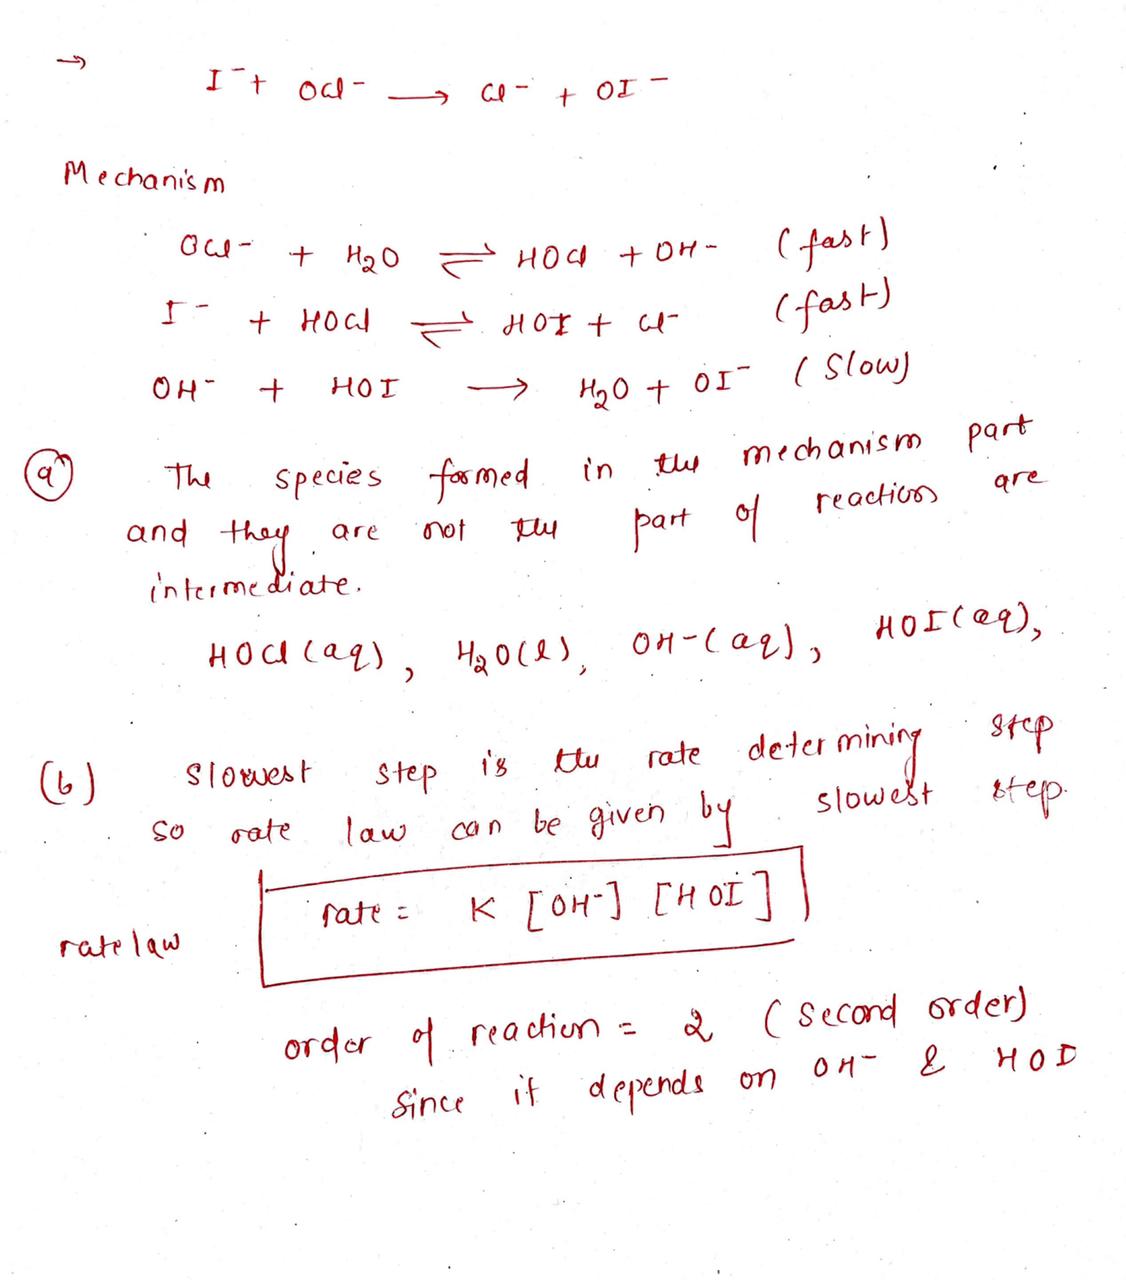 → I⁻ + OCl⁻ ⟶ Cl⁻ + OI⁻
Mechanism
OCl⁻ + H₂O ⇌ HOCl + OH⁻ (fast)
I⁻ + HOCl ⇌ HOI + Cl⁻ (fast)
OH⁻ + HOI ⟶ H₂O + OI⁻ (Slow)
(a) The species formed in the mechanism part
and they are not the part of reaction are
intermediate.
HOCl (aq), H₂O(l), OH⁻(aq), HOI(aq),
(b) slowest step is the rate determining step
so rate law can be given by slowest step.
rate law rate = K [OH⁻] [HOI]
order of reaction = 2 (Second order)
Since it depends on OH⁻ & HOI